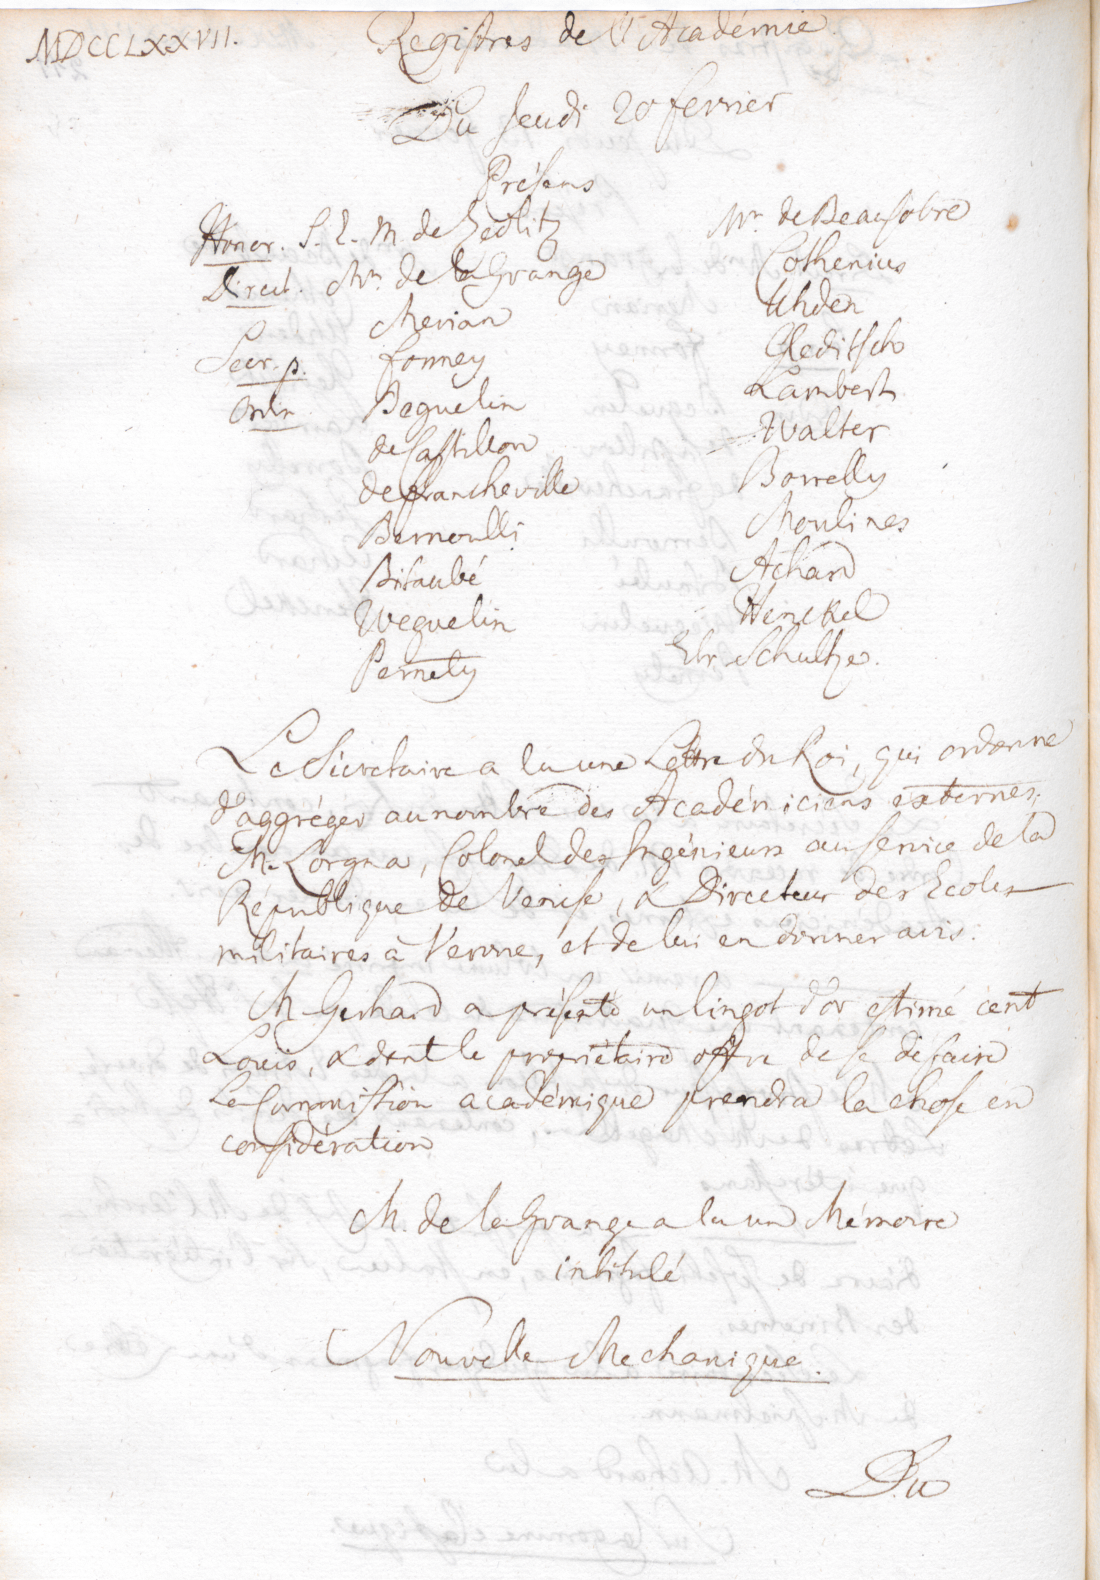 MDCCLXXVII.
Registres de l'Académie.
Du Jeudi 20 fevrier
Présens
Honor. S. E. M. de Zedlitz
Direct. Mrs. de la Grange
Merian
Secr. p. formey
Ordin Beguelin
de Castillon
de Francheville
Bernoulli
Bitaubé
Weguelin
Pernety
Mrs. de Beausobre
Cothenius
Uhden
Gleditsch
Lambert
Walter
Borrelly
Moulines
Achard
Henckel
Etr. Schultze.
Le Sécretaire a lu une Lettre du Roi, qui ordonne
d'aggréger au nombre des Académiciens externes,
M. Lorgna, Colonel des Ingénieurs au service de la
République de Venise, & Directeur des Ecoles
militaires à Verone, et de lui en donner avis.
M. Gerhard a présenté un lingot d'or estimé cent
Louis, & dont le propriétaire offre de se defaire
La Commission académique prendra la chose en
considération
M. de la Grange a lu un Mémoire
intitulé
Nouvelle Mechanique.
Du